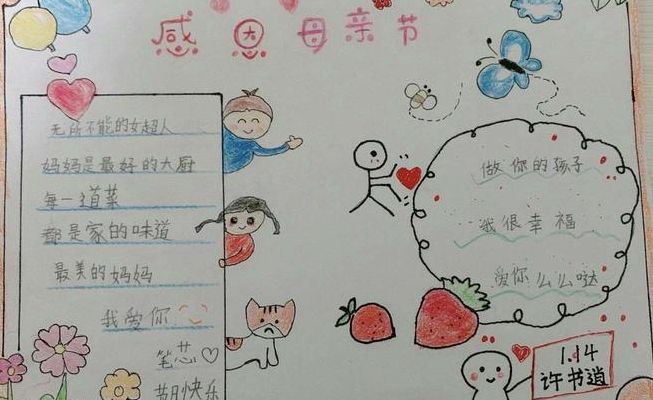 感恩母亲节
无所不能的女超人
妈妈是最好的大厨
每一道菜
都是家的味道
最美的妈妈
我爱你
笔芯
节日快乐
做你的孩子
我很幸福
爱你么么哒
1.14
许书逍